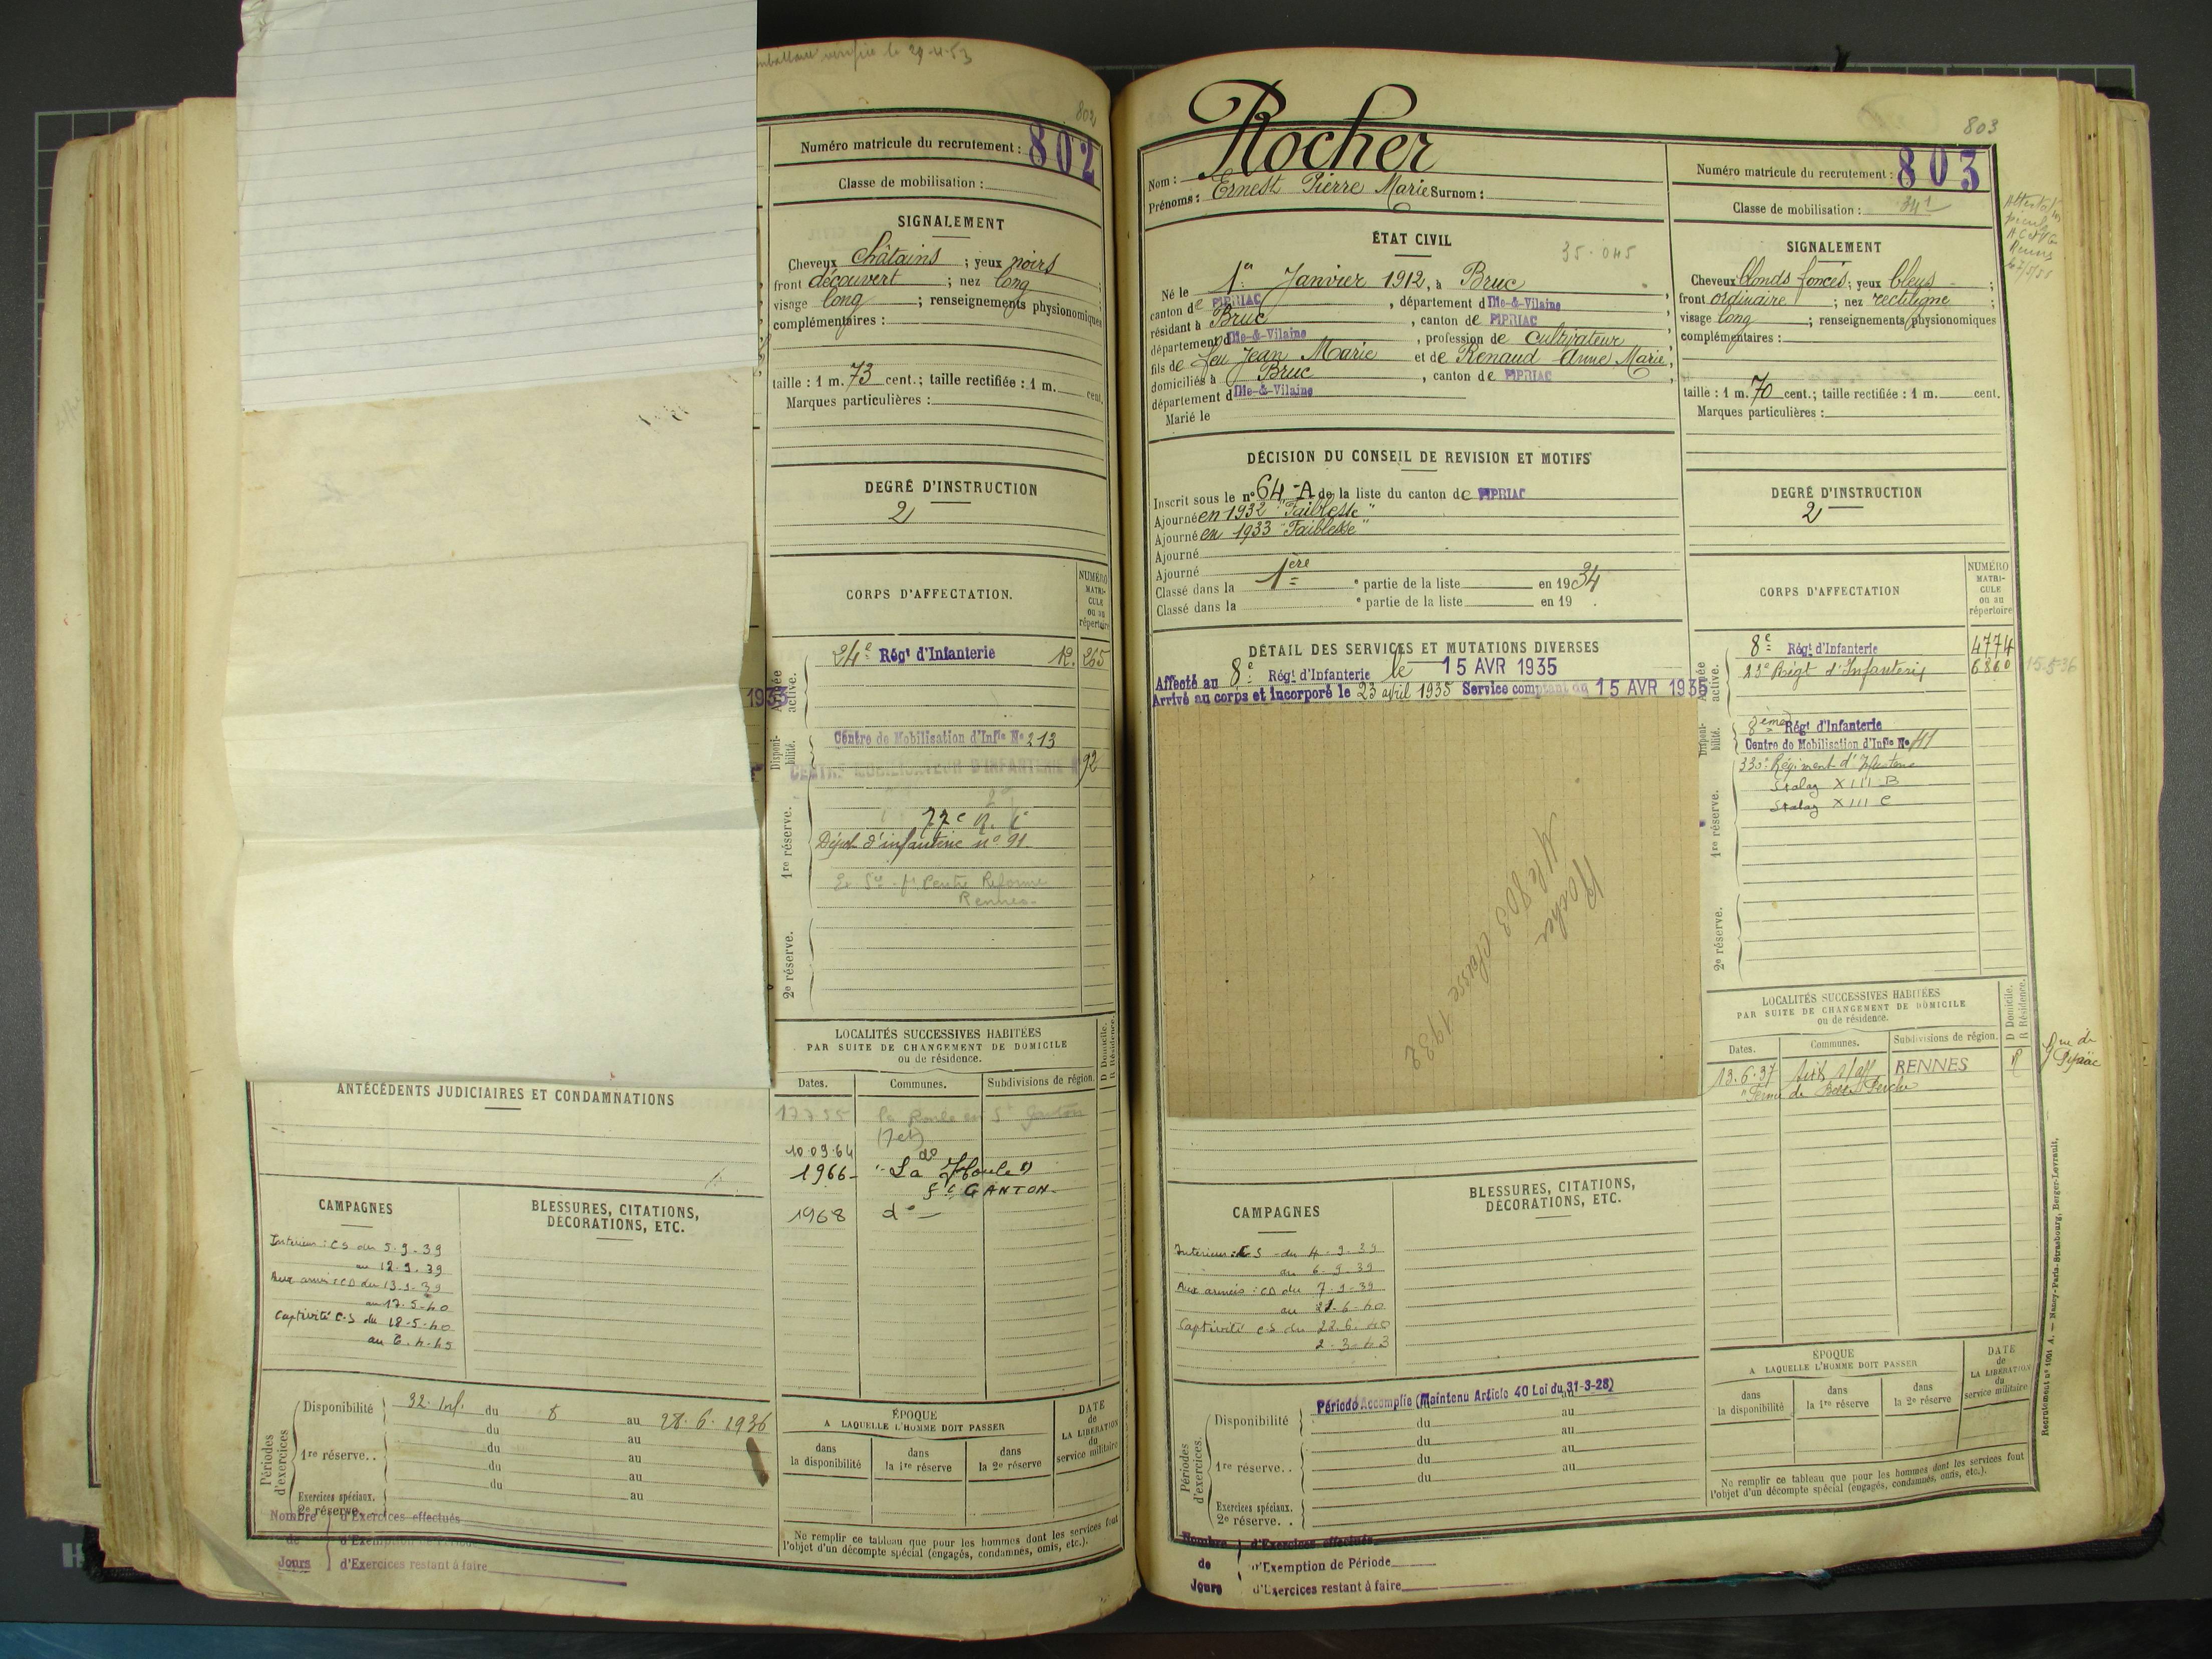 vérifiée le 29-4-53
802
Numéro matricule du recrutement : 802
Classe de mobilisation :
SIGNALEMENT
Cheveux châtains ; yeux noirs
front découvert ; nez long ;
visage long ; renseignements physionomiques
complémentaires :
taille : 1 m. 73 cent. ; taille rectifiée : 1 m. cent.
Marques particulières :
DEGRÉ D'INSTRUCTION
2
CORPS D'AFFECTATION.
NUMÉRO
MATRI-
CULE
ou au
répertoire
Armée active.
24e Régt d'Infanterie 12.265
1933
Disponi-
bilité.
Centre de Mobilisation d'Infie No 213
CENTRE MOBILISATEUR D'INFANTERIE 92
1re réserve.
77e R. I
Dépôt d'infanterie no 91
Centre Réforme
Rennes
2e réserve.
LOCALITÉS SUCCESSIVES HABITÉES
PAR SUITE DE CHANGEMENT DE DOMICILE
ou de résidence.
D Domicile.
R Résidence.
Dates. Communes. Subdivisions de région.
10-09-64 do
1966- "La Houle"
St GANTON-
1968 do-
ANTÉCÉDENTS JUDICIAIRES ET CONDAMNATIONS
CAMPAGNES
Intérieur : CS du 5.9.39
au 12.9.39
Aux armées CD du 13.9.39
au 17-5-40
Captivité C.S du 18-5-40
au 6.4.45
BLESSURES, CITATIONS,
DÉCORATIONS, ETC.
Périodes
d'exercices
Disponibilité 32. Inf. du 8 au 28.6.1936
du au
1re réserve. . du au
du au
du au
Exercices spéciaux.
2e réserve.
Nombre d'Exercices effectués
de d'Exemption de Période
Jours d'Exercices restant à faire
ÉPOQUE
A LAQUELLE L'HOMME DOIT PASSER
dans
la disponibilité
dans
la 1re réserve
dans
la 2e réserve
DATE
de
LA LIBÉRATION
du
service militaire
Ne remplir ce tableau que pour les hommes dont les services font
l'objet d'un décompte spécial (engagés, condamnés, omis, etc.).
803
Nom : Rocher
Prénoms : Ernest Pierre Marie Surnom :
Numéro matricule du recrutement : 803
Classe de mobilisation : 341
ÉTAT CIVIL
35.045
Né le 1er Janvier 1912, à Bruc ,
canton de PIPRIAC , département d Ille-&-Vilaine ,
résidant à Bruc , canton de PIPRIAC ,
département d Ille-&-Vilaine , profession de cultivateur
fils de feu Jean Marie et de Renaud Anne Marie ,
domiciliés à Bruc , canton de PIPRIAC ,
département d Ille-&-Vilaine
Marié le
SIGNALEMENT
Cheveux blonds foncés ; yeux bleus ;
front ordinaire ; nez rectiligne ;
visage long ; renseignements physionomiques
complémentaires :
taille : 1 m. 70 cent. ; taille rectifiée : 1 m. cent.
Marques particulières :
DÉCISION DU CONSEIL DE REVISION ET MOTIFS
Inscrit sous le no 64-A de la liste du canton de PIPRIAC
Ajourné en 1932 "Faiblesse"
Ajourné en 1933 "Faiblesse"
Ajourné
Ajourné
Classé dans la 1ère e partie de la liste en 1934
Classé dans la e partie de la liste en 19 .
DEGRÉ D'INSTRUCTION
2
DÉTAIL DES SERVICES ET MUTATIONS DIVERSES
Affecté au 8e Régt d'Infanterie le 15 AVR 1935
Arrivé au corps et incorporé le 23 avril 1935 Service comptant du 15 AVR 1935
Rocher
Mle 803 classe 1932
CORPS D'AFFECTATION
NUMÉRO
MATRI-
CULE
ou au
répertoire
Armée active.
8e Régt d'Infanterie 4774
23e Régt d'Infanterie 6860
Disponi-
bilité.
8ème Régt d'Infanterie
Centre de Mobilisation d'Infie No 41
1re réserve.
330e Régiment d'Infanterie
Stalag XIII B
Stalag XIII C
2e réserve.
LOCALITÉS SUCCESSIVES HABITÉES
PAR SUITE DE CHANGEMENT DE DOMICILE
ou de résidence.
D Domicile.
R Résidence.
Dates. Communes. Subdivisions de région.
13.6.37 RENNES R
"Ferme de
rue de
CAMPAGNES
Intérieur : CS du 4.9.39
au 6.9.39
Aux armées : CD du 7.9.39
au 21.6.40
Captivité CS du 22.6.40
2-3-43
BLESSURES, CITATIONS,
DÉCORATIONS, ETC.
Périodes
d'exercices.
Disponibilité
Période Accomplie (Maintenu Article 40 Loi du 31-3-28)
du au
du au
1re réserve. . du au
du au
Exercices spéciaux.
2e réserve. .
Nombre d'Exercices effectués
de d'Exemption de Période
Jours d'Exercices restant à faire
ÉPOQUE
A LAQUELLE L'HOMME DOIT PASSER
dans
la disponibilité
dans
la 1re réserve
dans
la 2e réserve
DATE
de
LA LIBÉRATION
du
service militaire
Ne remplir ce tableau que pour les hommes dont les services font
l'objet d'un décompte spécial (engagés, condamnés, omis, etc.).
Recrutement no 1091 A. — Nancy-Paris-Strasbourg, Berger-Levrault.